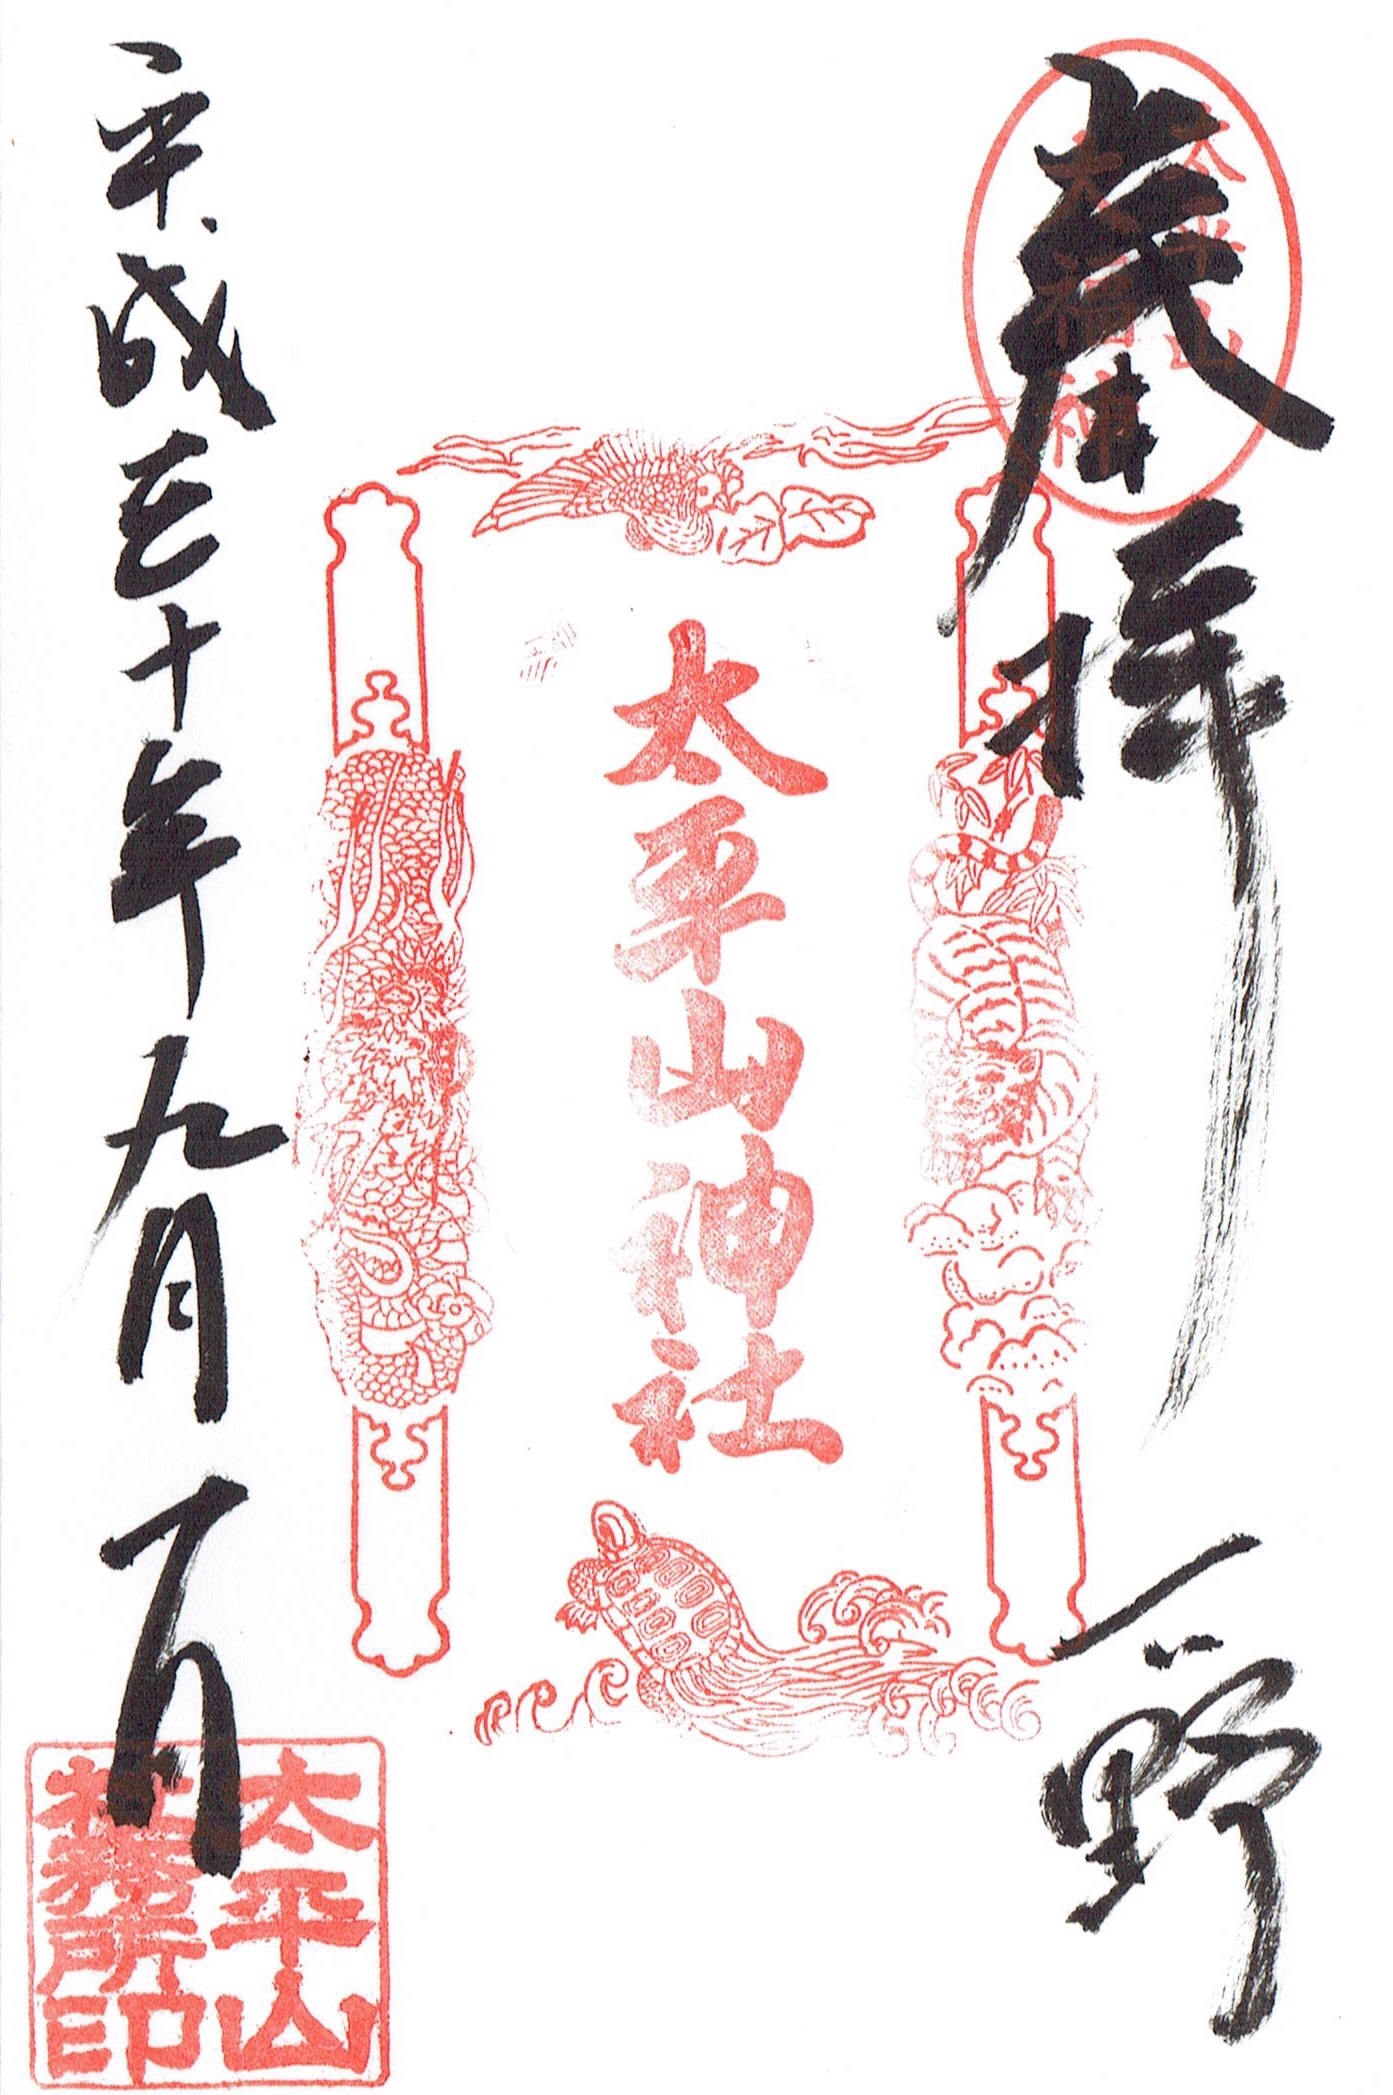 太平山
大福神
奉拝
下野
太平山神社
平成三十年九月一日
太平山
社務所印